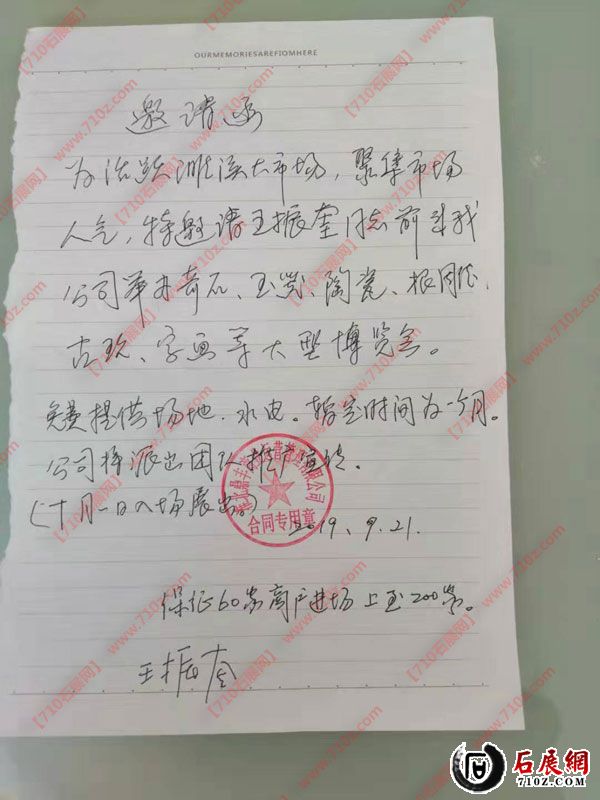 OURMEMORIESAREFIOMHERE
邀请函
为活跃濉溪大市场，聚集市场
人气，特邀请王振奎同志前来我
公司举办奇石、玉器、陶瓷、根雕、
古玩、字画等大型博览会。
免费提供场地、水电。暂定时间为一个月。
公司将派出团队推广宣传。
(十月一日入场展出。)
合同专用章
2019.9.21.
保证60家商户进场上至200家。
王振奎
【710石展网】www.710z.com
石展網
710Z.COM